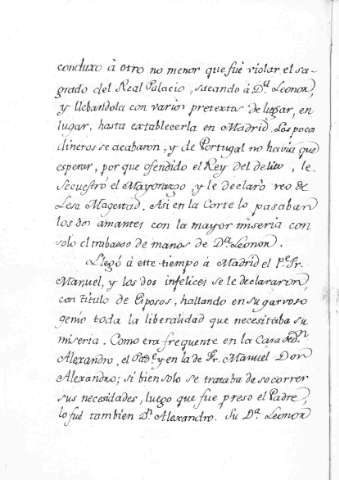 conduxo à otro no menor que fué violar el sa-
grado del Real Palacio, sacando à D.ª Leonor,
y llebandola con varios pretextos de lugar, en
lugar, hasta extablecerla en Madrid. Los pocos
dineros se acabaron, y de Portugal no havia que
esperar, por que ofendido el Rey del delito, le
Sequestró el Mayorazgo y le declaró reo de
Lesa Magestad. Asi en la Corte lo pasaban
los dos amantes con la mayor miseria con
solo el trabaxo de manos de D.ª Leonor.
Llegó à este tiempo à Madrid el P.e Fr.
Manuel, y los dos infelices se le declararon,
con titulo de Esposos, hallando en su garvoso
genio toda la liberalidad que necesitaba su
miseria. Como era frequente en la Casa de D.n
Alexandro, el Padre y en la de Fr. Manuel Don
Alexandro; si bien solo se trataba de socorrer
sus necesidades, luego que fue preso el Padre,
lo fué tambien D.n Alexandro. Su D.ª Leonor